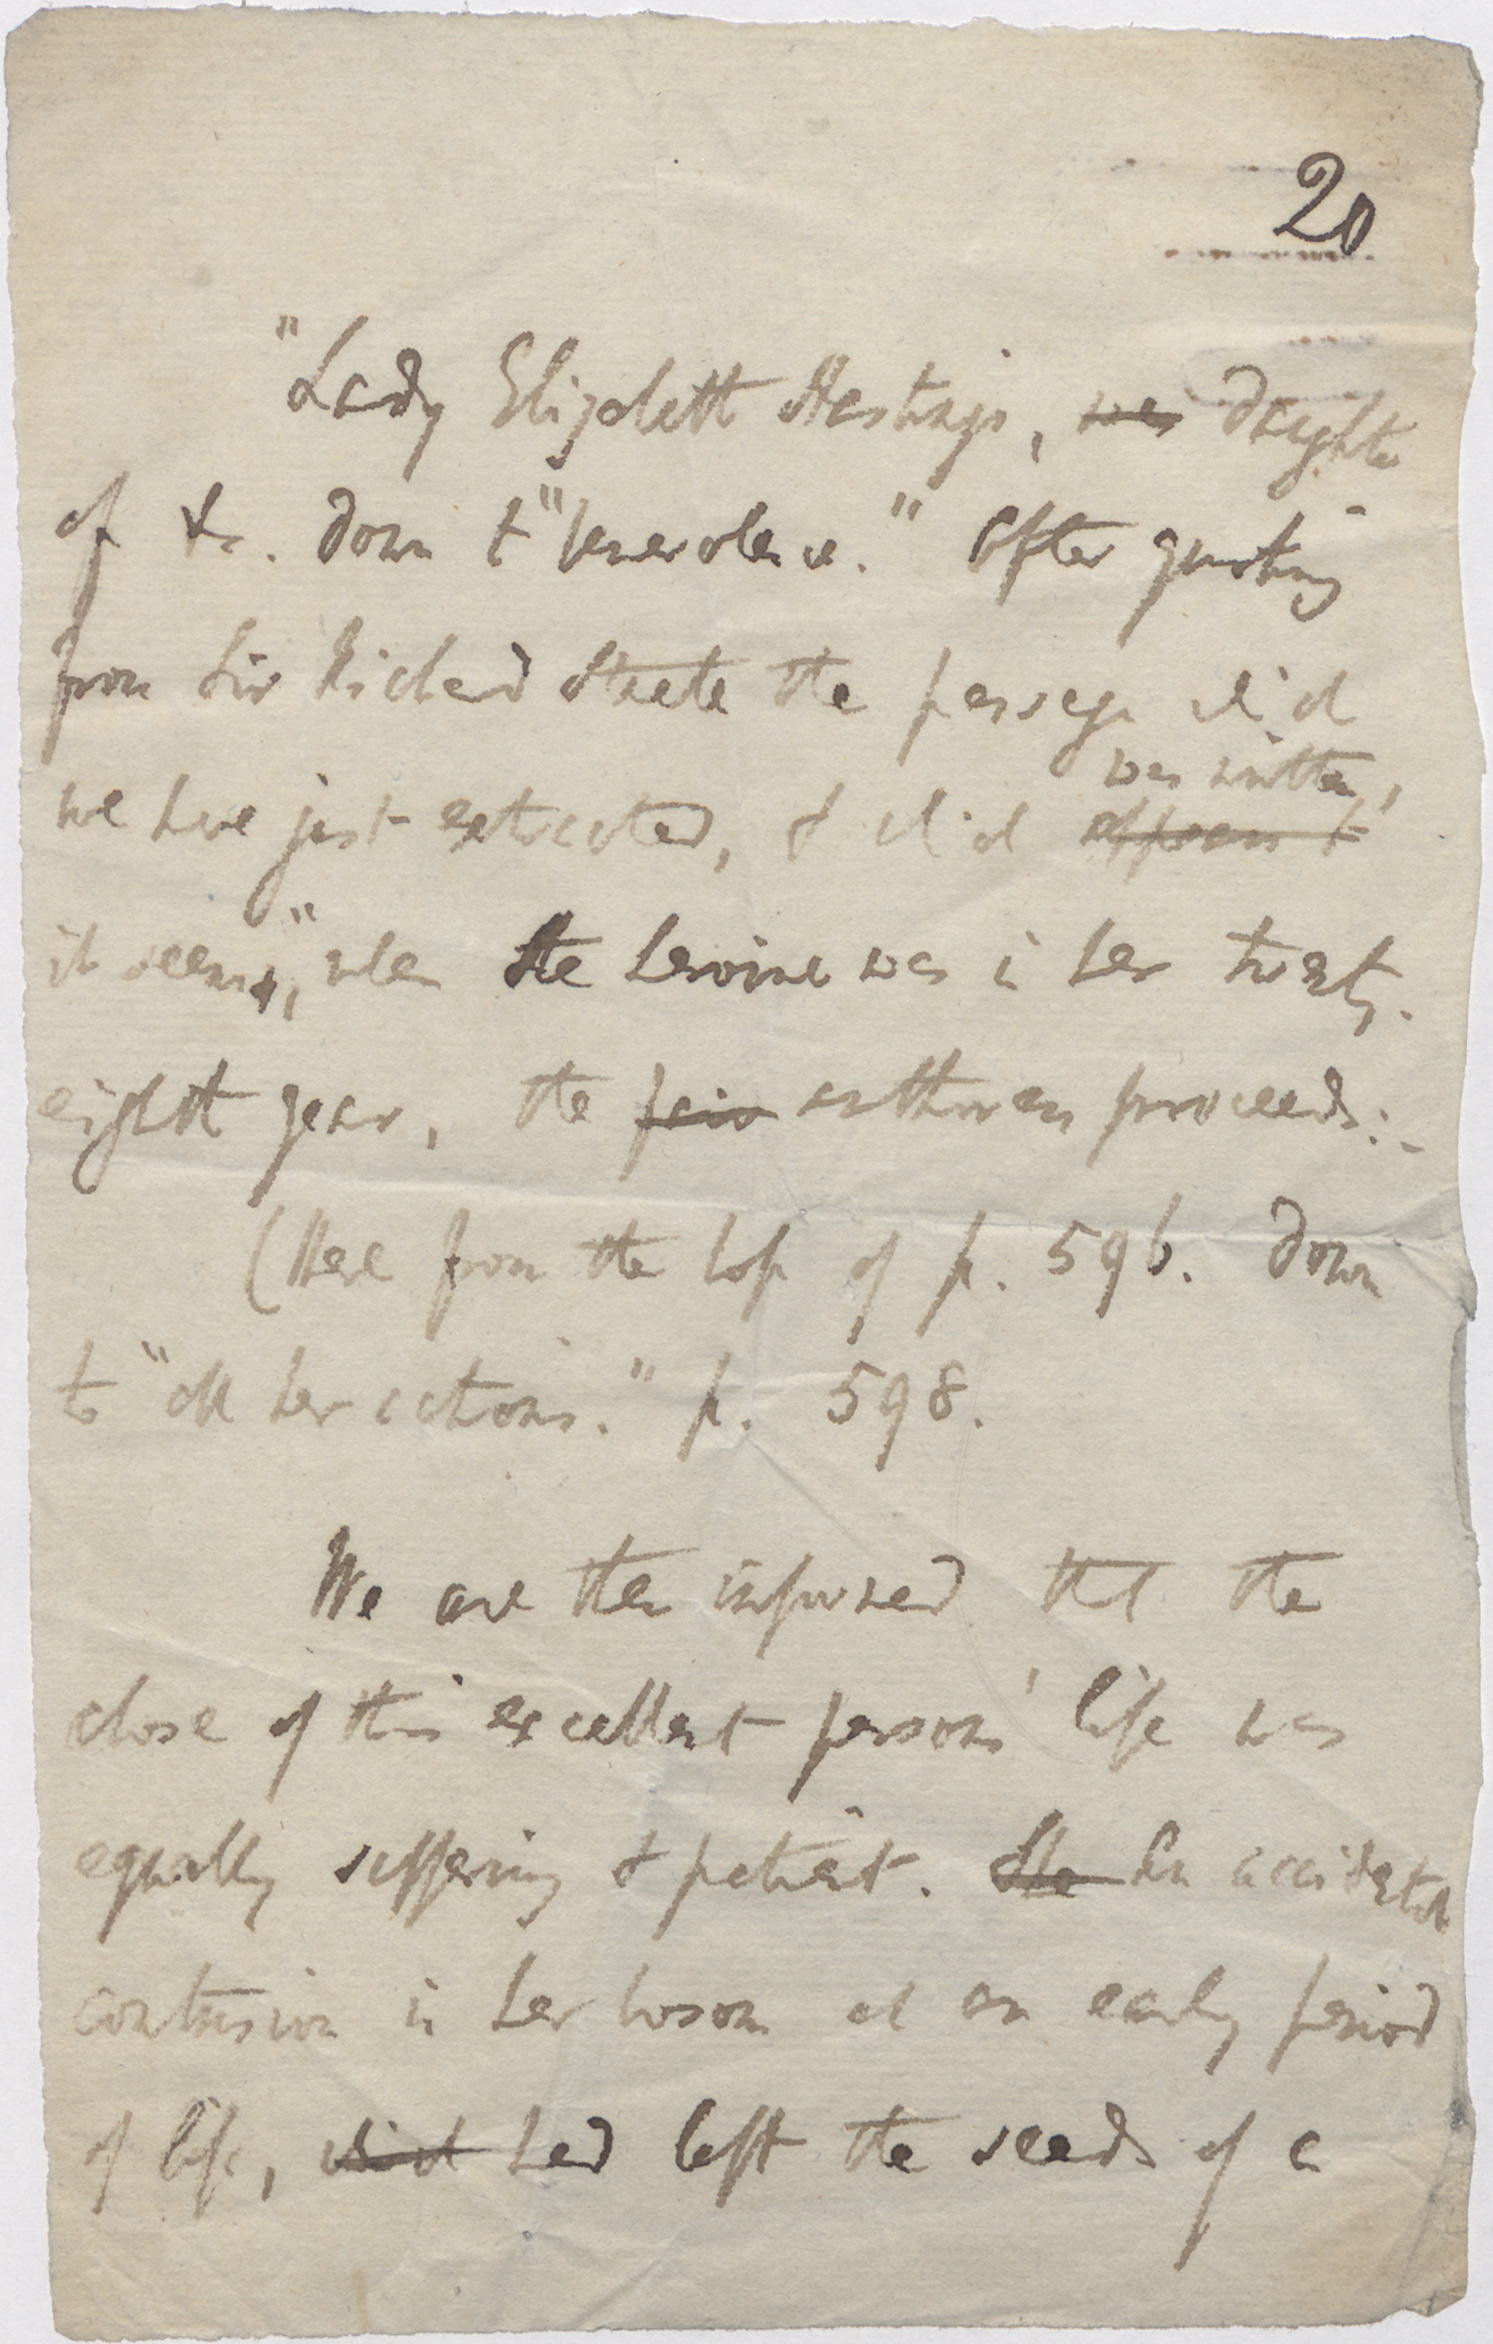 20
"Lady Elizabeth Hastings, was daughter
of &c. down to "benevolence." After quoting
from Sir Richard Steele the passage which
was written,
we have just extracted, & which appears to
it seems, "when the heroine was in her twenty-
eighth year, the fair authoress proceeds:-
(Here from the top of p. 596. down
to "all her actions." p. 598.
We are then informed that the
close of this excellent person's life was
equally suffering & patient. She An accidental
contusion in her bosom at an early period
of life, which had left the seeds of a